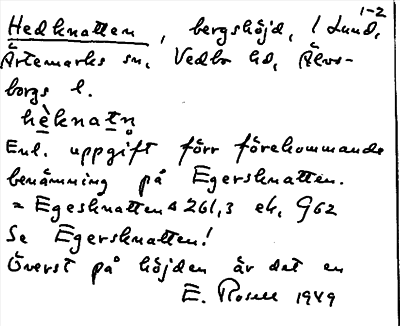 1-2
Hedknatten, bergshöjd, 1 Lund,
Ärtemarks sn, Vedbo hd, Älvs-
borgs l.
hèknatn̥
Enl. uppgift förr förekommande
benämning på Egersknatten.
= Egesknatten ∆ 261,3 ek. 962
Se Egersknatten!
Överst på höjden är det en
E. Rosell 1949